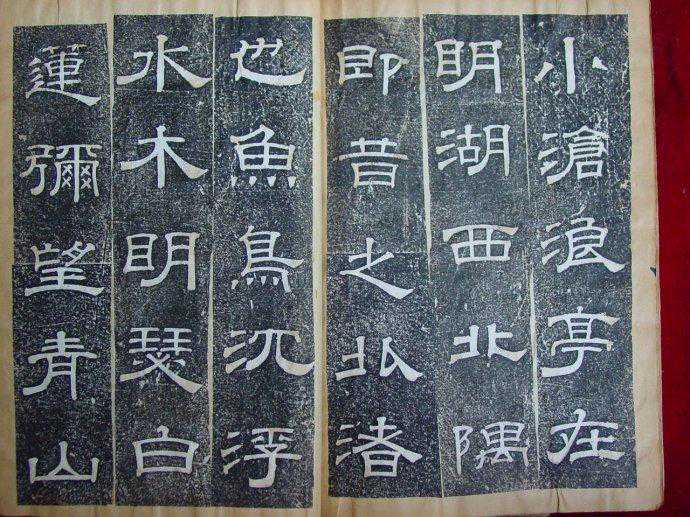 小滄浪亭在
明湖西北隅
即昔之北渚
也魚鳥沉浮
水木明瑟白
蓮彌望青山